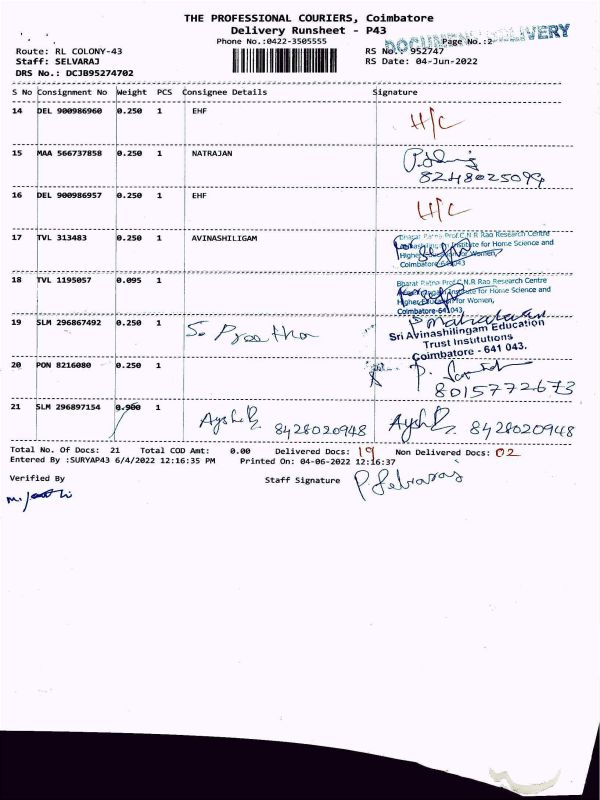 THE PROFESSIONAL COURIERS, Coimbatore
Delivery Runsheet - P43
Phone No.:0422-3505555
DELIVERY
Page No.:2
Route: RL COLONY-43
RS No.: 952747
Staff: SELVARAJ
RS Date: 04-Jun-2022
DRS No.: DCJB95274702
S No Consignment No Weight PCS Consignee Details Signature
14 DEL 900986960 0.250 1 EHF H/C
15 MAA 566737858 0.250 1 NATRAJAN
8248025099
16 DEL 900986957 0.250 1 EHF H/C
17 TVL 313483 0.250 1 AVINASHILIGAM
Bharat Ratna Prof.C.N.R Rao Research Centre
Institute for Home Science and
Higher Women,
Coimbatore-641043
18 TVL 1195057 0.095 1
Bharat Ratna Prof.C.N.R Rao Research Centre
Institute for Home Science and
Higher Education for Women,
Coimbatore-641043
19 SLM 296867492 0.250 1 S. Preetha
Sri Avinashilingam Education
Trust Institutions
Coimbatore - 641 043.
20 PON 8216080 0.250 1
8015772673
21 SLM 296897154 0.900 1 8428020948 8428020948
Total No. Of Docs: 21 Total COD Amt: 0.00 Delivered Docs: 19 Non Delivered Docs: 02
Entered By :SURYAP43 6/4/2022 12:16:35 PM Printed On: 04-06-2022 12:16:37
Verified By Staff Signature